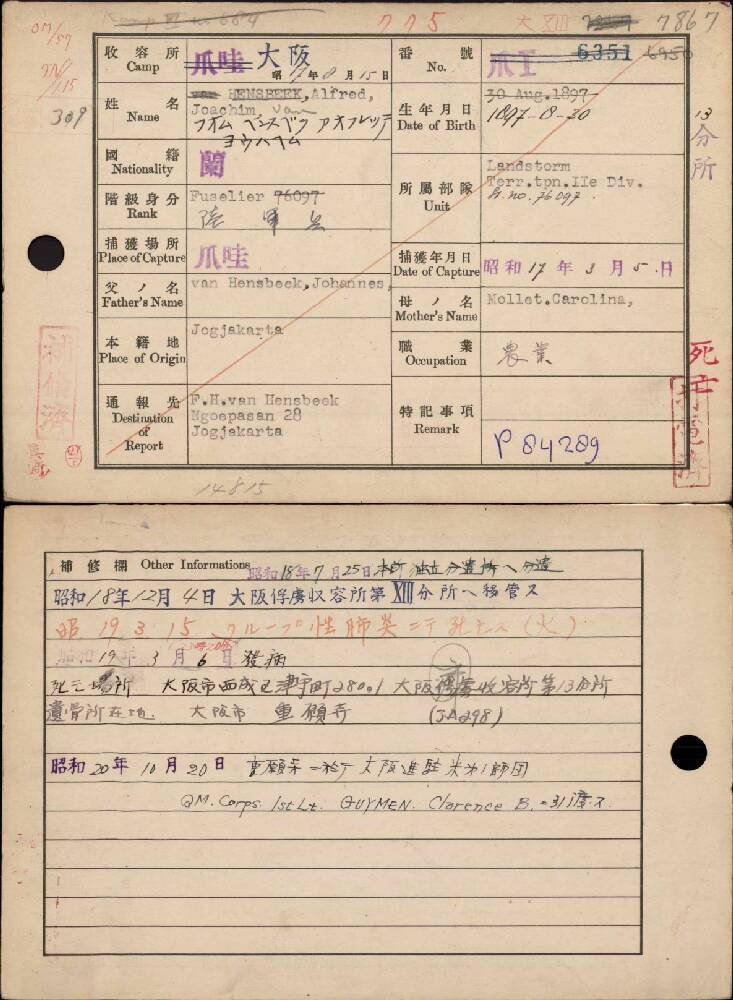 Kamp II no 684
775
大 XIII
7867
309
13分所
收容所
Camp
爪哇 大阪
昭17年8月15日
番號
No.
爪工 6351
姓名
Name
van HENSBEEK, Alfred,
Joachim van
生年月日
Date of Birth
30 Aug.1897
1897-8-30
國籍
Nationality
蘭
階級身分
Rank
Fuselier 76097
陸軍
所屬部隊
Unit
Landstorm
Terr.tpn.IIe Div.
St. no. 76097.
捕獲場所
Place of Capture
爪哇
捕獲年月日
Date of Capture
昭和17年3月5日
父ノ名
Father's Name
van Hensbeek, Johannes,
母ノ名
Mother's Name
Mollet.Carolina,
本籍地
Place of Origin
Jogjakarta
職業
Occupation
農業
通報先
Destination of Report
F.H.van Hensbeek
Ngoepasan 28
Jogjakarta
特記事項
Remark
P 84289
死亡
14815
補修欄 Other Informations
昭和18年7月25日
昭和18年12月4日 大阪俘虜收容所第XIII分所ヘ移管ス
昭19 3 15 クループ性肺炎ニテ死亡ス(火)
昭和19年3月6日發病
死亡場所 大阪市西成区津守町280ノ1 大阪俘虜收容所第13分所
遺骨所在地 大阪市 重願寺 (JA298)
昭和20年10月20日 重願寺ニ於テ大阪進駐米第1師団
QM. Corps. 1st Lt. GUYMEN. Clarence B. 引渡ス